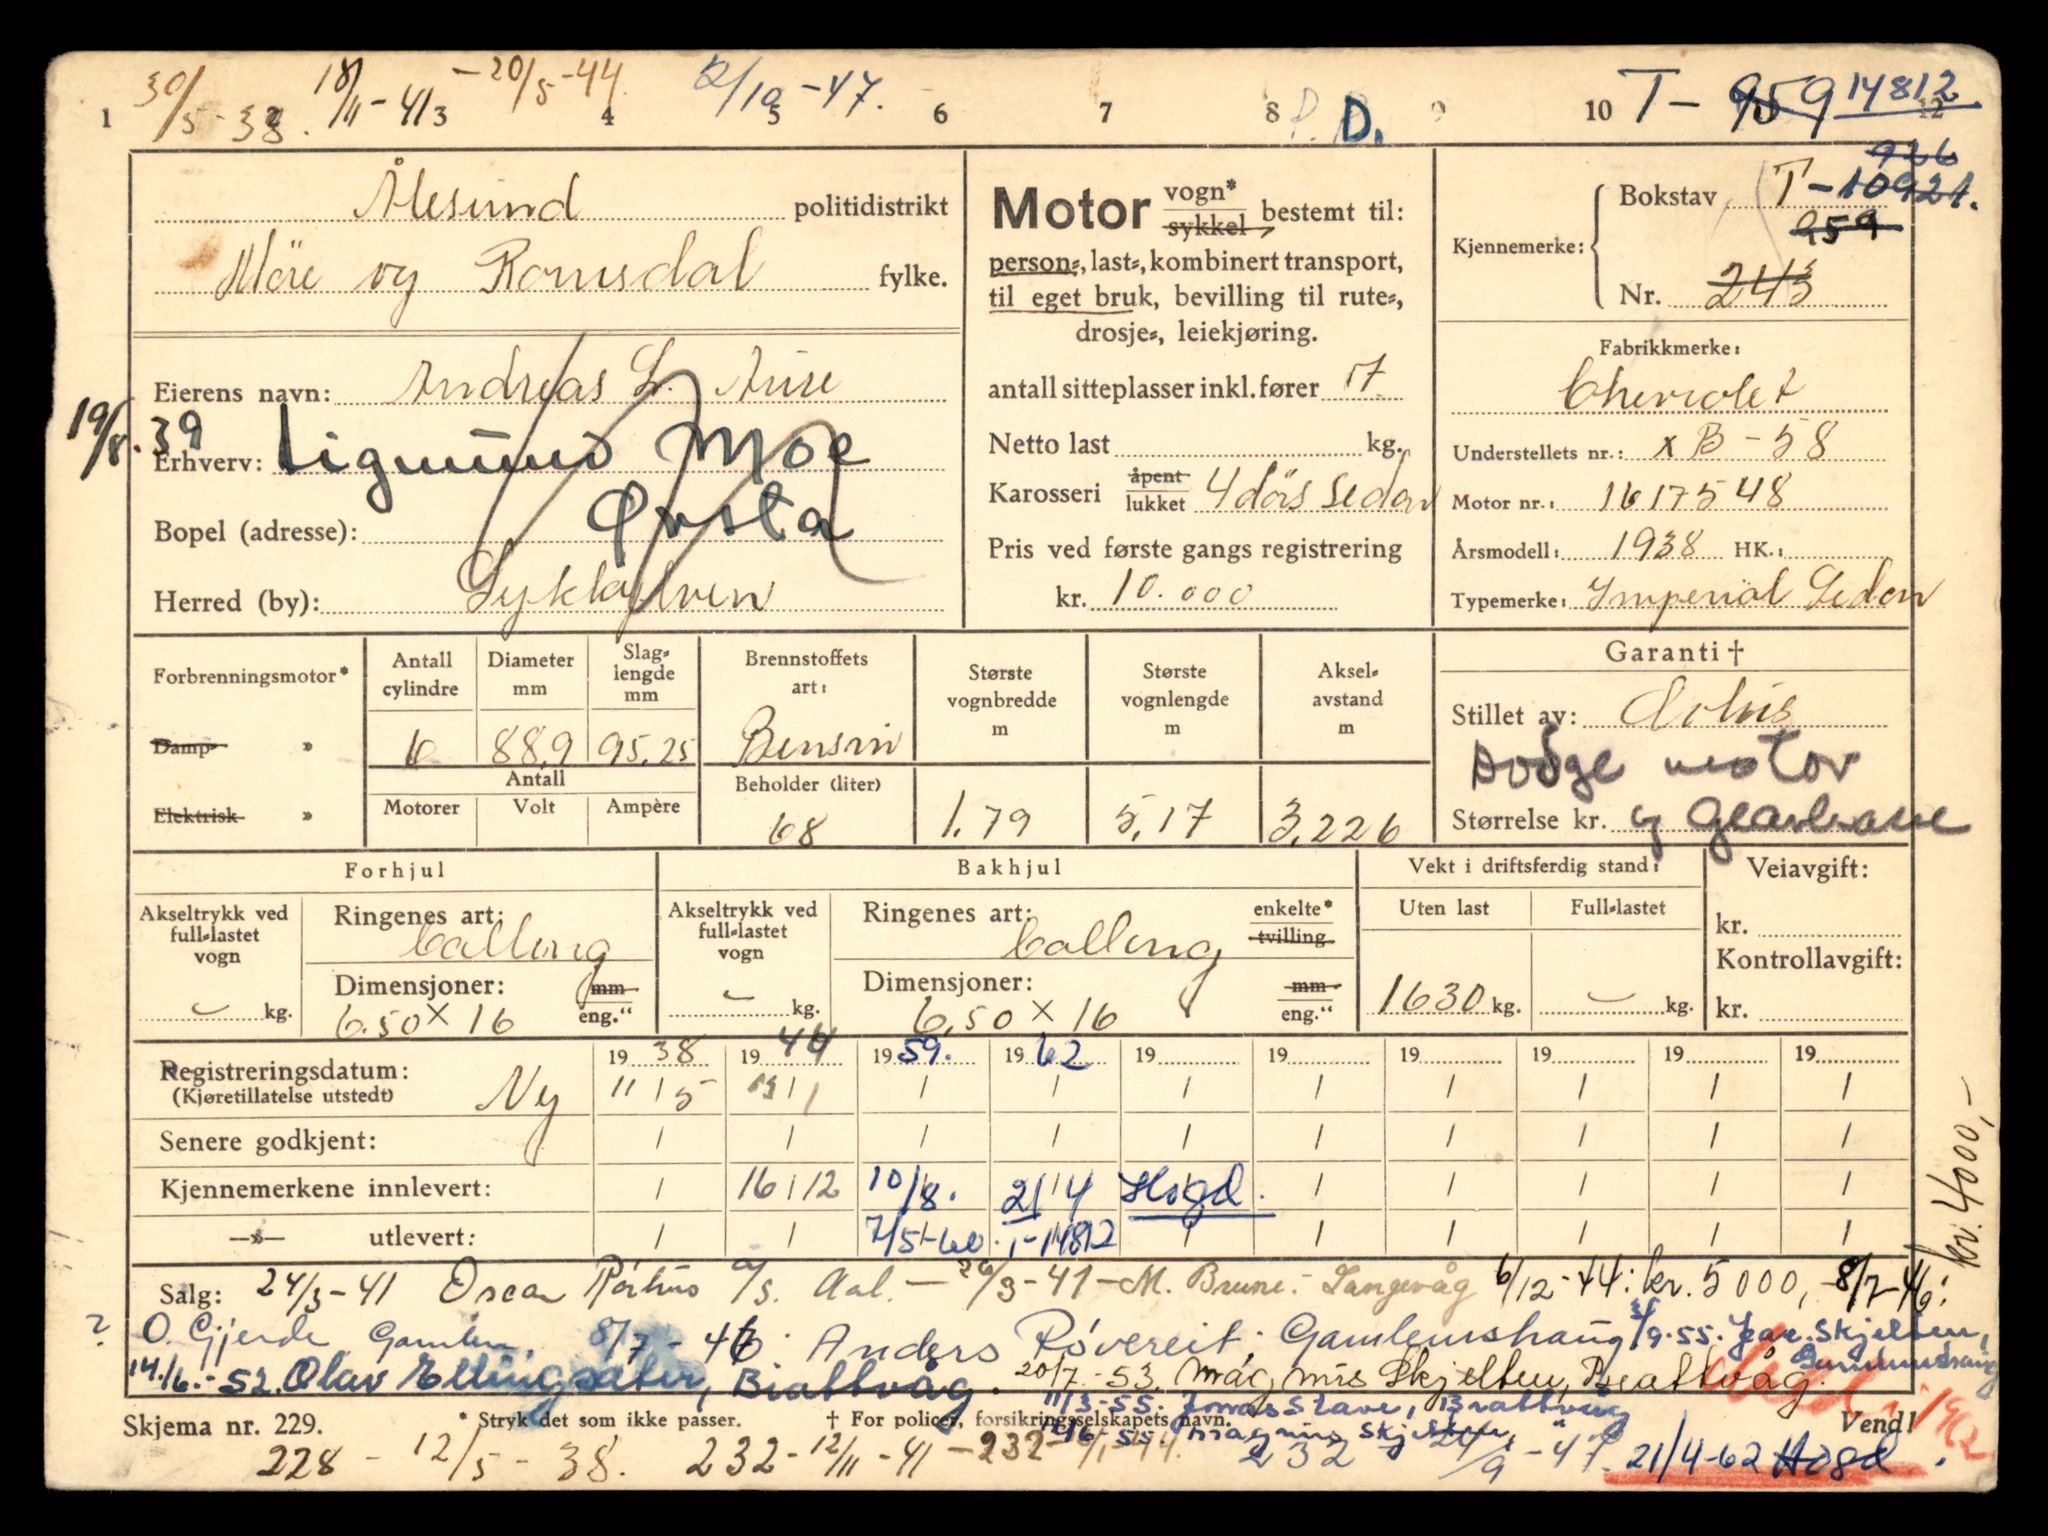 30/5-38. 18/11-41 -20/5-44. 2/10-47. P. D. T- 959 14812
1 3 4 5 6 7 8 9 10 12
Ålesund politidistrikt
Möre og Romsdal fylke.
Motor vogn* sykkel bestemt til:
person-, last-, kombinert transport,
til eget bruk, bevilling til rute-,
drosje-, leiekjøring.
antall sitteplasser inkl. fører 17
Netto last kg.
Karosseri åpent lukket 4 dörs sedan
Pris ved første gangs registrering
kr. 10.000
926
Bokstav T-10921.
959
Kjennemerke:
Nr. 243
Fabrikkmerke:
Chevrolet
Understellets nr.: x B-58
Motor nr.: 1617548
Årsmodell: 1938 HK.:
Typemerke: Imperial Sedan
Eierens navn: Andreas L. Aure
19/8.39
Erhverv: Sigmund Moe
Ørsta
Bopel (adresse):
Herred (by): Sykkylven
Forbrenningsmotor*
Damp- »
Elektrisk »
Antall cylindre 6
Diameter mm 88,9
Slaglengde mm 95,25
Antall
Motorer Volt Ampère
Brennstoffets art: Bensin
Beholder (liter) 68
Største vognbredde m 1,79
Største vognlengde m 5,17
Akselavstand m 3,226
Garanti †
Stillet av: Polaris
Dodge motor
Størrelse kr. og Gearkasse
Forhjul
Akseltrykk ved full-lastet vogn kg.
Ringenes art: Balling
Dimensjoner: mm eng."
6.50 x 16
Bakhjul
Akseltrykk ved full-lastet vogn kg.
Ringenes art: Balling enkelte* tvilling
Dimensjoner: mm eng."
6,50 x 16
Vekt i driftsferdig stand:
Uten last Full-lastet
1630 kg. kg.
Veiavgift:
kr.
Kontrollavgift:
kr.
19 38 19 44 19 59. 19 62 19 19 19 19 19 19
Registreringsdatum: Ny 11/5
(Kjøretillatelse utstedt)
Senere godkjent:
Kjennemerkene innlevert: 16/12 10/8. 21/4 Hogd.
—»— utlevert: 7/5-60. T-14812
kr. 4000,-
Salg: 24/3-41 Oscar Rörhus A/S. Aal. - 26/3-41 - M. Brune. Langevåg 6/12-44: kr. 5000,- 8/7-46:
? O. Gjerde Gamlem, 8/7-46. Anders Røvereit, Gamlemshaug 3/9-55. Skjelten, Gamlemshaug
14/6.-52. Olav Ellingsæter, Brattvåg. 20/7-53. Magnus Skjelten, Brattvåg.
11/3-55. Jonas Stave, Brattvåg
Skjema nr. 229. * Stryk det som ikke passer. † For policer, forsikringsselskapets navn. Vend!
-55. Magnus Skjelten, "
228 - 12/5-38. 232-12/11-41 - 232- 232 24/9-47. 21/4-62 Hogd.